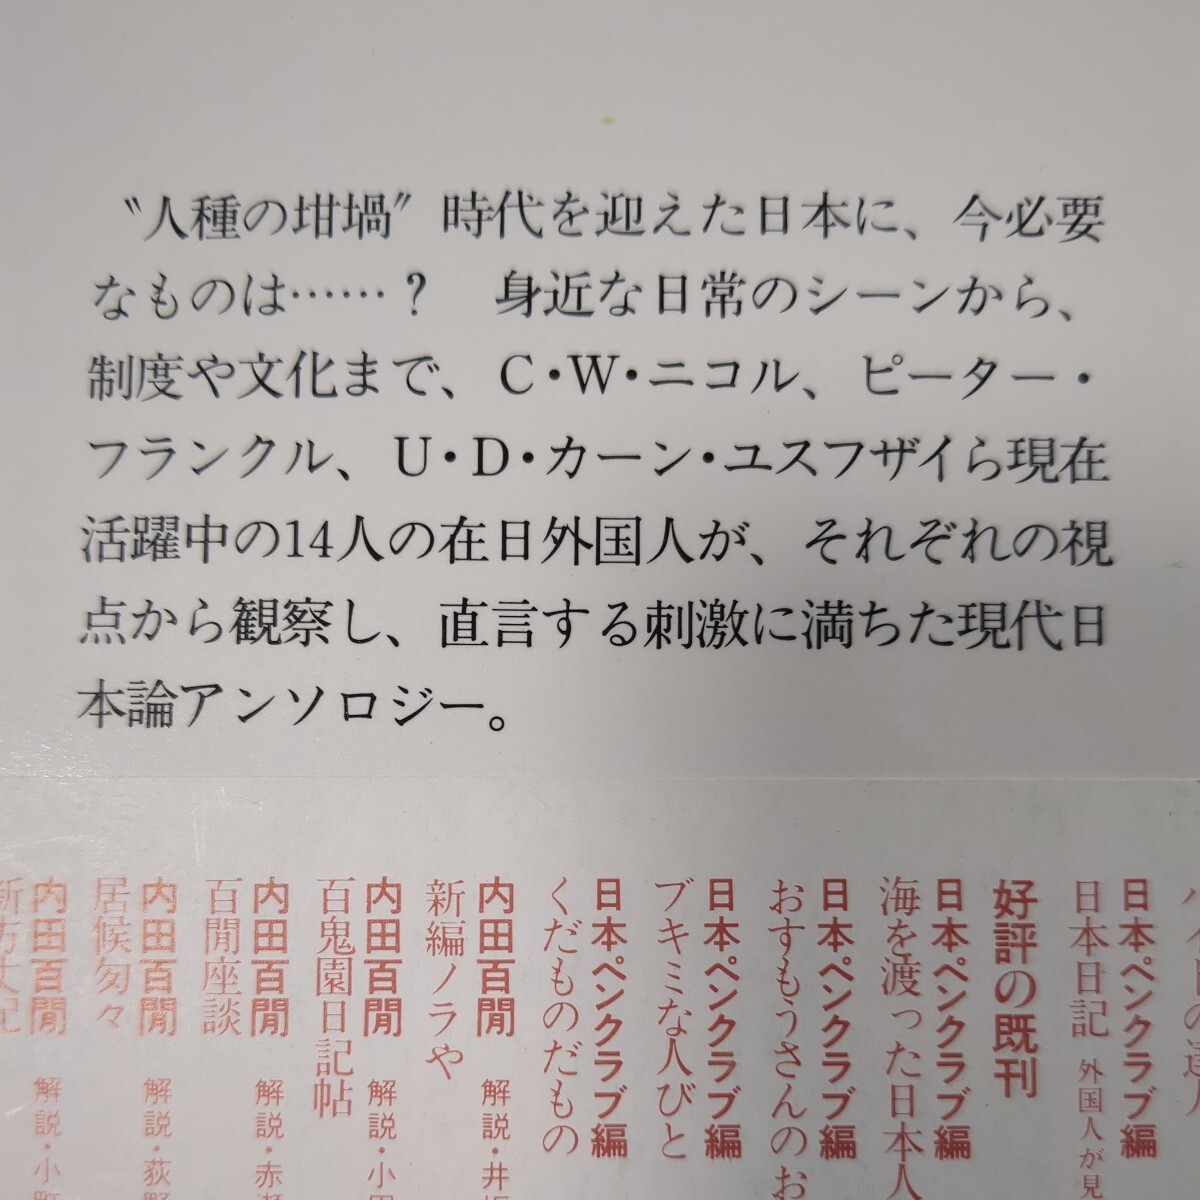 〝人種の坩堝〟時代を迎えた日本に、今必要
なものは……？　身近な日常のシーンから、
制度や文化まで、C・W・ニコル、ピーター・
フランクル、U・D・カーン・ユスフザイら現在
活躍中の14人の在日外国人が、それぞれの視
点から観察し、直言する刺激に満ちた現代日
本論アンソロジー。
日本ペンクラブ編
日本日記 外国人が見
好評の既刊
日本ペンクラブ編
海を渡った日本人
日本ペンクラブ編
おすもうさんのお
日本ペンクラブ編
ブキミな人びと
日本ペンクラブ編
くだものだもの
内田百閒 解説・井
新編ノラや
内田百閒 解説・小
百鬼園日記帖
内田百閒 解説・赤
百閒座談
内田百閒 解説・荻
居候匆々
内田百閒 解説・小
新方丈記